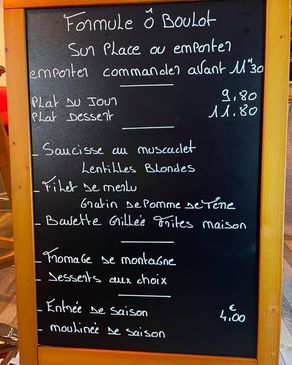 Formule Ô Boulot
Sur Place ou emporter
emporter commander avant 11h30
Plat du Jour 9,80
Plat Dessert 11.80
- Saucisse au muscadet
Lentilles Blondes
- Filet de merlu
Gratin de Pomme de Terre
- Bavette Grillée Frites maison
- Fromage de montagne
- Desserts aux choix
- Entrée de saison 4,00 €
- moulinée de saison